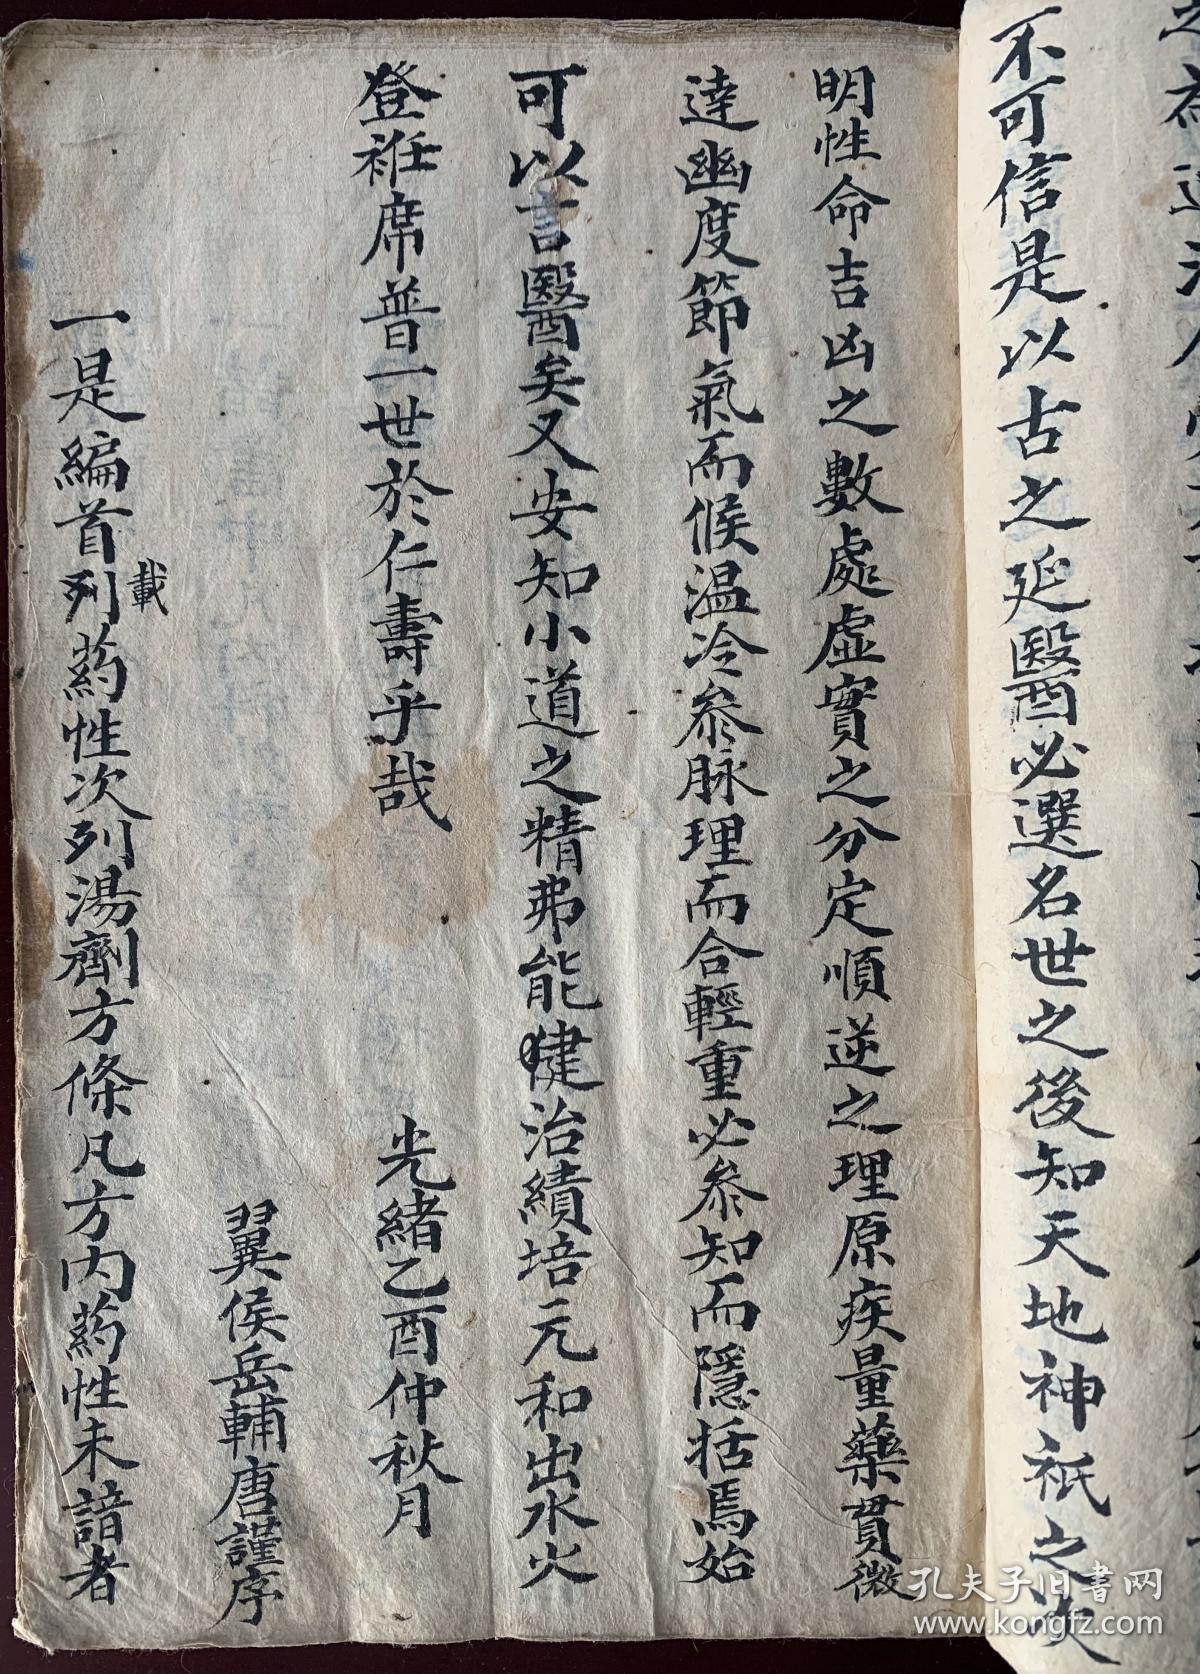 不可信是以古之延醫必選名世之後知天地神祇之次
明性命吉凶之數處虛實之分定順逆之理原疾量藥貫微
達幽度節氣而候温冷參脉理而合輕重必參知而隱括焉始
可以言醫矣又安知小道之精弗能健治績培元和出水火
登袵席普一世於仁壽乎哉
光緒乙酉仲秋月
翼侯岳輔唐謹序
一是編首列載葯性次列湯劑方條凡方内葯性未諳者
孔夫子旧書网
www.kongfz.com